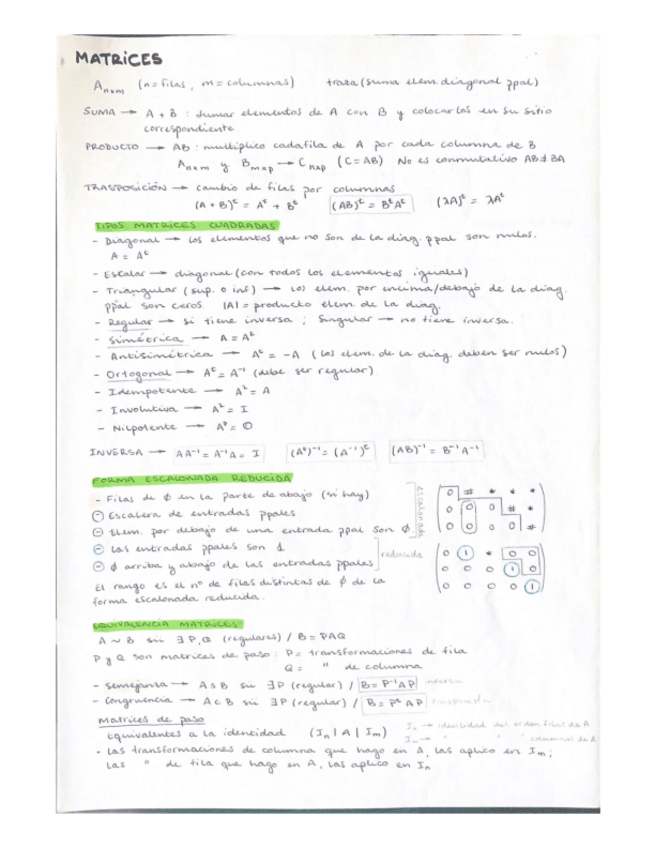 MATRICES
A nxm (n = filas, m = columnas) traza (suma elem. diagonal ppal)
SUMA → A + B : sumar elementos de A con B y colocarlos en su sitio
correspondiente
PRODUCTO → AB : multiplico cada fila de A por cada columna de B
A nxm y B mxp → C nxp (C = AB) No es conmutativo AB ≠ BA
TRASPOSICIÓN → cambio de filas por columnas
(A + B)ᵗ = Aᵗ + Bᵗ (AB)ᵗ = BᵗAᵗ (λA)ᵗ = λAᵗ
TIPOS MATRICES CUADRADAS
- Diagonal → los elementos que no son de la diag. ppal son nulos.
A = Aᵗ
- Escalar → diagonal (con todos los elementos iguales)
- Triangular (sup. o inf) → los elem. por encima/debajo de la diag.
ppal son ceros. |A| = producto elem. de la diag.
- Regular → si tiene inversa ; Singular → no tiene inversa.
- Simétrica → A = Aᵗ
- Antisimétrica → Aᵗ = -A (los elem. de la diag. deben ser nulos)
- Ortogonal → Aᵗ = A⁻¹ (debe ser regular)
- Idempotente → A² = A
- Involutiva → A² = I
- Nilpotente → = 0
INVERSA → AA⁻¹ = A⁻¹A = I (Aᵗ)⁻¹ = (A⁻¹)ᵗ (AB)⁻¹ = B⁻¹A⁻¹
FORMA ESCALONADA REDUCIDA
- Filas de ∅ en la parte de abajo (si hay)
- Escalera de entradas ppales
- Elem. por debajo de una entrada ppal son ∅
escalonada
0 # * * *
0 0 0 # *
0 0 0 0 #
- Las entradas ppales son 1
- ∅ arriba y abajo de las entradas ppales
reducida
0 1 * 0 0
0 0 0 1 0
0 0 0 0 1
El rango es el nº de filas distintas de ∅ de la
forma escalonada reducida.
EQUIVALENCIA MATRICES
A ~ B sii ∃ P, Q (regulares) / B = PAQ
P y Q son matrices de paso : P = transformaciones de fila
Q = " de columna
- Semejanza → A S B sii ∃P (regular) / B = P⁻¹AP inversa
- Congruencia → A C B sii ∃P (regular) / B = PᵗAP traspuesta
Matrices de paso
Equivalentes a la identidad (Iₙ | A | Iₘ) Iₙ → identidad del orden filas de A
Iₘ → " " " columnas de A
• Las transformaciones de columna que hago en A, las aplico en Iₘ;
Las " de fila que hago en A, las aplico en Iₙ